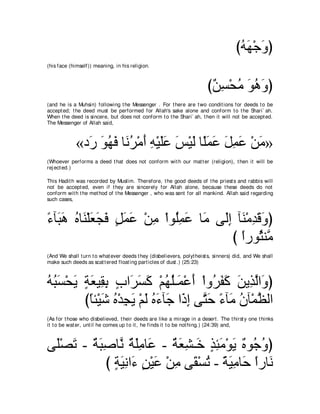 (وَجْهَهُ)
(his face (himself)) meaning, in his religion.
(وَهُوَ مُحْسِنٌ)
(and he is a Muhsin) following the Messenger . For there are two conditions for deeds to be
accepted; the deed must be performed for Allah's sake alone and conform to the Shari`ah.
When the deed is sincere, but does not conform to the Shari`ah, then it will not be accepted.
The Messenger of Allah said,
«مَنْ عَمِلَ عَمَلًا لَيْسَ عَلَيْهِ أَمْرُنَا فَهُوَ رَد»
(Whoever performs a deed that does not conform with our matter (religion), then it will be
rejected.)
This Hadith was recorded by Muslim. Therefore, the good deeds of the priests and rabbis will
not be accepted, even if they are sincerely for Allah alone, because these deeds do not
conform with the method of the Messenger , who was sent for all mankind. Allah said regarding
such cases,
(وَقَدِمْنَآ إِلَى مَا عَمِلُواْ مِنْ عَمَلٍ فَجَعَلْنَاهُ هَبَآءً
مَّنثُوراً )
(And We shall turn to whatever deeds they (disbelievers, polytheists, sinners) did, and We shall
make such deeds as scattered floating particles of dust.) (25:23)
(وَالَّذِينَ كَفَرُواْ أَعْمَـلُهُمْ كَسَرَابٍ بِقِيعَةٍ يَحْسَبُهُ
الظَّمْآنُ مَآءً حَتَّى إِذَا جَآءَهُ لَمْ يَجِدْهُ شَيْئاً)
(As for those who disbelieved, their deeds are like a mirage in a desert. The thirsty one thinks
it to be water, until he comes up to it, he finds it to be nothing.) (24:39) and,
(وُجُوهٌ يَوْمَئِذٍ خَـشِعَةٌ - عَامِلَةٌ نَّاصِبَةٌ - تَصْلَى
نَاراً حَامِيَةً - تُسْقَى مِنْ عَيْنٍ ءَانِيَةٍ )